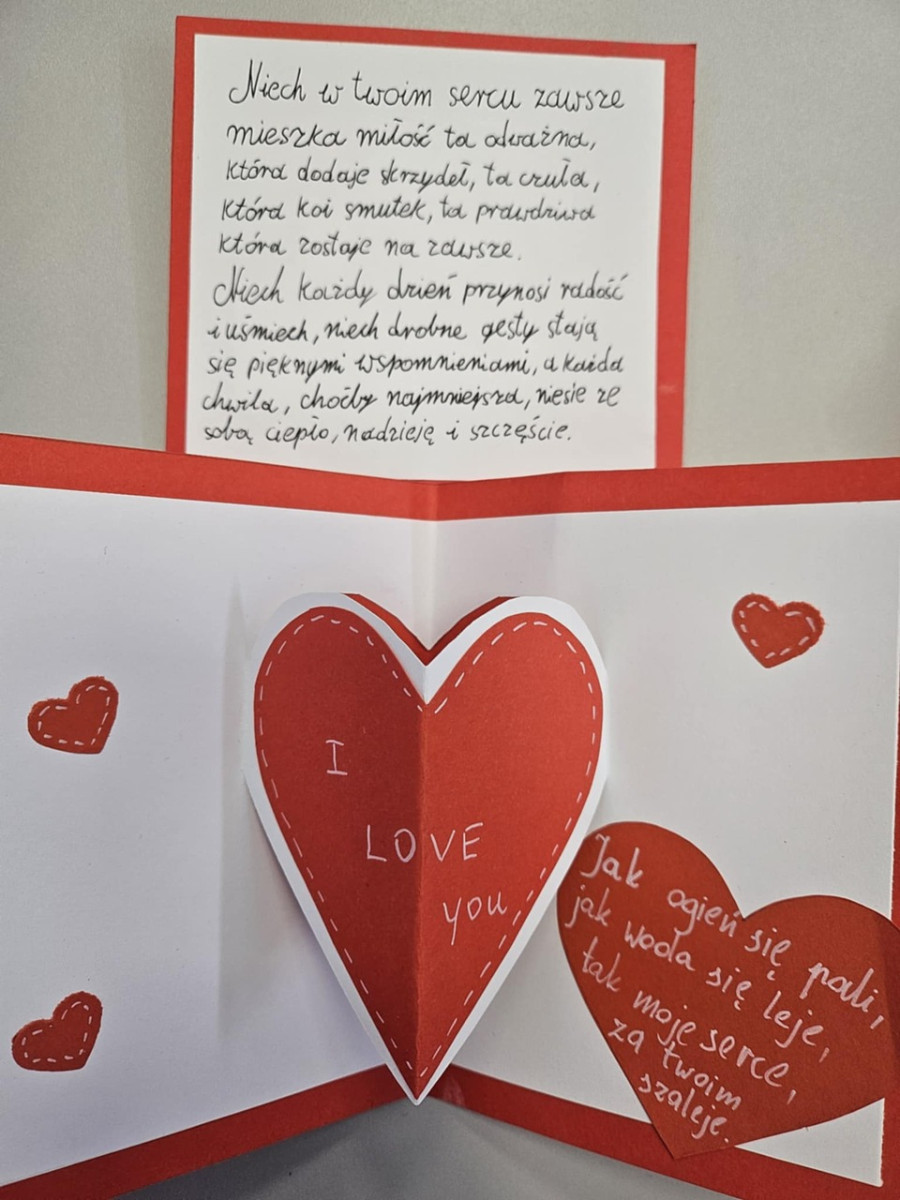 Niech w twoim sercu zawsze
mieszka miłość ta odważna,
która dodaje skrzydeł, ta czuła,
która koi smutek, ta prawdziwa
która zostaje na zawsze.
Niech każdy dzień przynosi radość
i uśmiech, niech drobne gesty stają
się pięknymi wspomnieniami, a każda
chwila, choćby najmniejsza, niesie ze
sobą ciepło, nadzieję i szczęście.
I
LOVE
you
Jak ogień się pali,
jak woda się leje,
tak moje serce,
za twoim
szaleje.